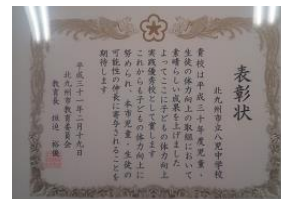 表彰状
北九州市立八児中学校
貴校は平成三十年度児童・
生徒の体力向上の取組において
素晴らしい成果を上げました
よってここに子どもの体力向上
実践優秀校として賞します
これからも子どもの体力向上に
努められ、本市児童・生徒の
可能性の伸長に寄与されることを
期待します
平成三十一年二月十九日
北九州市教育委員会
教育長